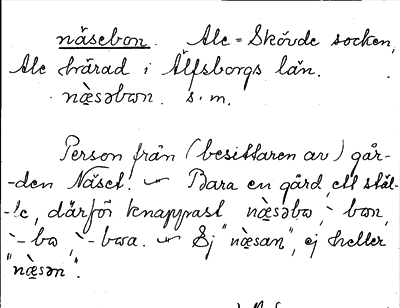 näsebon. Ale-Skövde socken,
Ale härad i Älfsborgs län.
næ̀səbωn. s. m.
Person från (besittaren av) går-
-den Näset. ~ Bara en gård, ett stäl-
-le, därför knappast næ̀səbω, `- bωn,
`- bω, `- bωa. ~ Ej "næ̀san", ej heller
"næ̀sən".